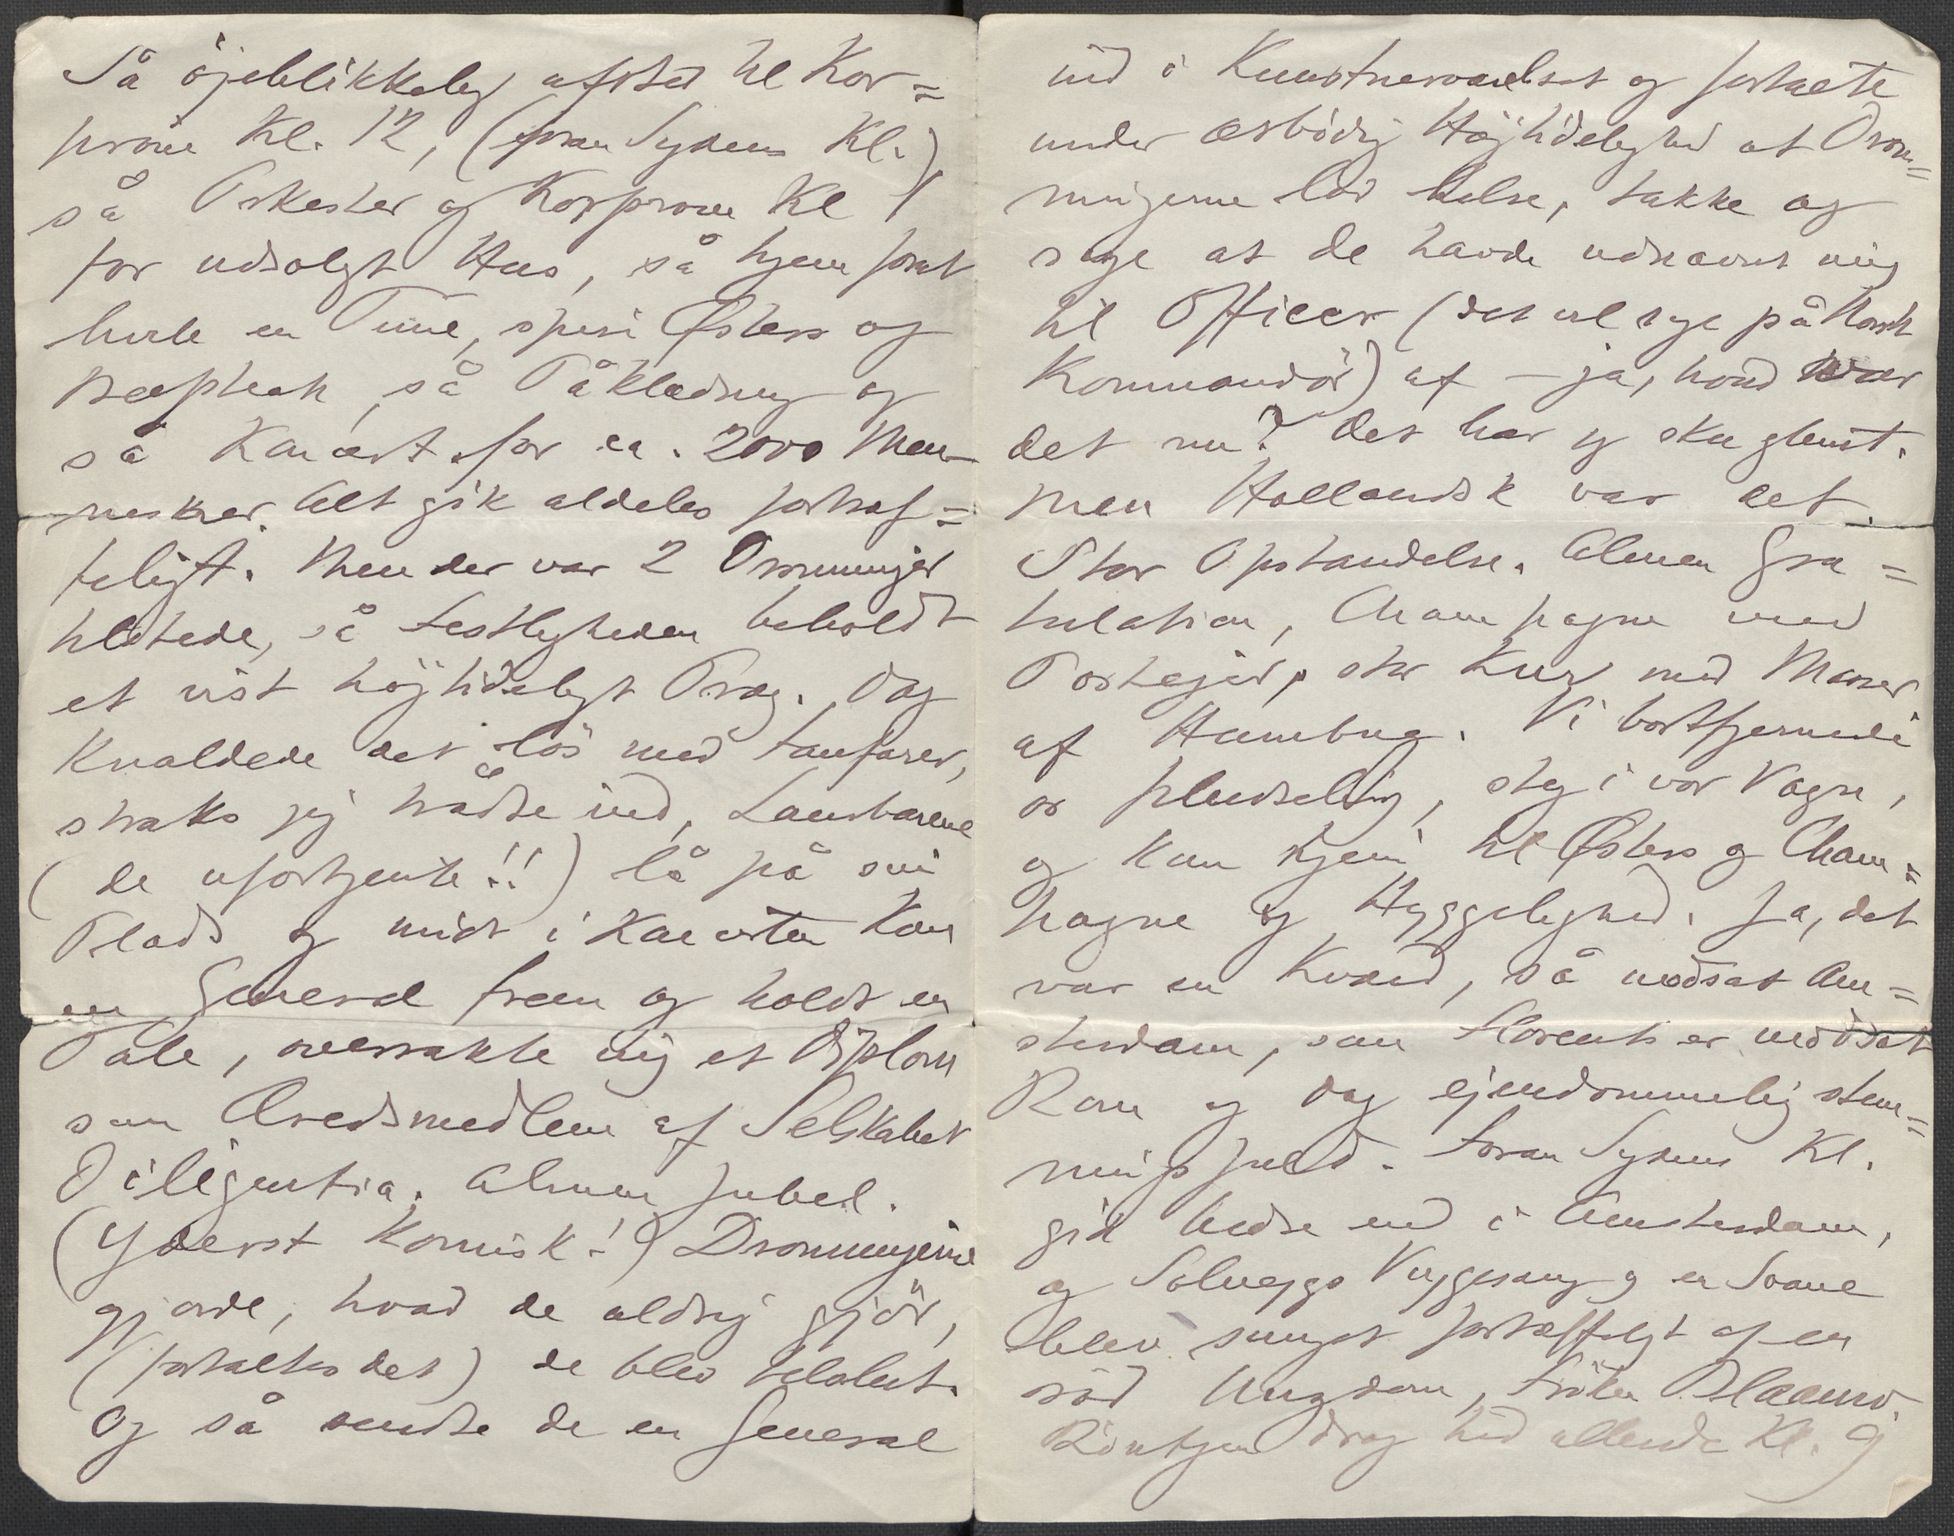 Så öjeblikkelig afsted til Kor=
pröve Kl. 12, (Foran Sydens Kl.)
så Orkester og Korpröve Kl 1
for udsolgt Hus, så hjem forat
hvile en Time, spise Østers og
Beefsteak, så Påklædning og
så Koncert for ca. 2000 Men-
nesker. Alt gik aldeles fortræf=
feligt. Men der var 2 Dronninger
tilstede, så Festligheden beholdt
et vist höjtideligt Præg. Dog
knaldede det lös med Fanfarer,
straks jeg trådte ind, Laurbærene
(de ufortjente!!) lå på sin
Plads og midt i Koncerten kom
en General frem og holdt en
Tale, overrakte mig et Diplom
som Æresmedlem af Selskabet
Diligentia. Almen Jubel.
(Yderst komisk!) Dronningerne
gjorde, hvad de aldrig gjör,
(fortaltes det) de blev tilslut.
Og så sendte de en General
ind i Kunstnerværelset og fortalte
under ærbödig Höjtidelighed at Dron=
ningerne lod hilse, takke og
sige at de havde udnævnt mig
til Officer (det vil sige på Norsk
Kommandör) af – ja, hvad var
det nu? Det har jeg sku glemt.
Men Hollandsk var det.
Stor Opstandelse. Almen Gra=
tulation, Champagne med
Postejer, stor Krug med Masser
af Humbug. Vi bortfjernede
os pludselig, steg i vor Vogn,
og kom hjem til Østers og Cham=
pagne og Hyggelighed. Ja, det
var en Kvæld, så modsat Am=
sterdam, som Florents er modsat
Rom og dog ejendommelig stem=
ningsfuld. Foran Sydens Kl.
gik bedre end i Amsterdam,
og Solvejgs Vuggesang og en Svane
blev sunget fortræffeligt af en
röd Ungdom, Fröken
Röntgen drog hid allerede Kl. 9